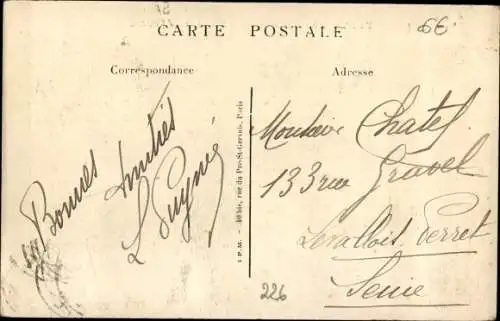 CARTE POSTALE
6€
Correspondance
Adresse
Bonnes
Amitiés
L Puynié
I P M. - 40 bis, rue du Pré-St-Gervais, Paris
Chatel
133 rue Gravel
Levallois Perret
Seine
226